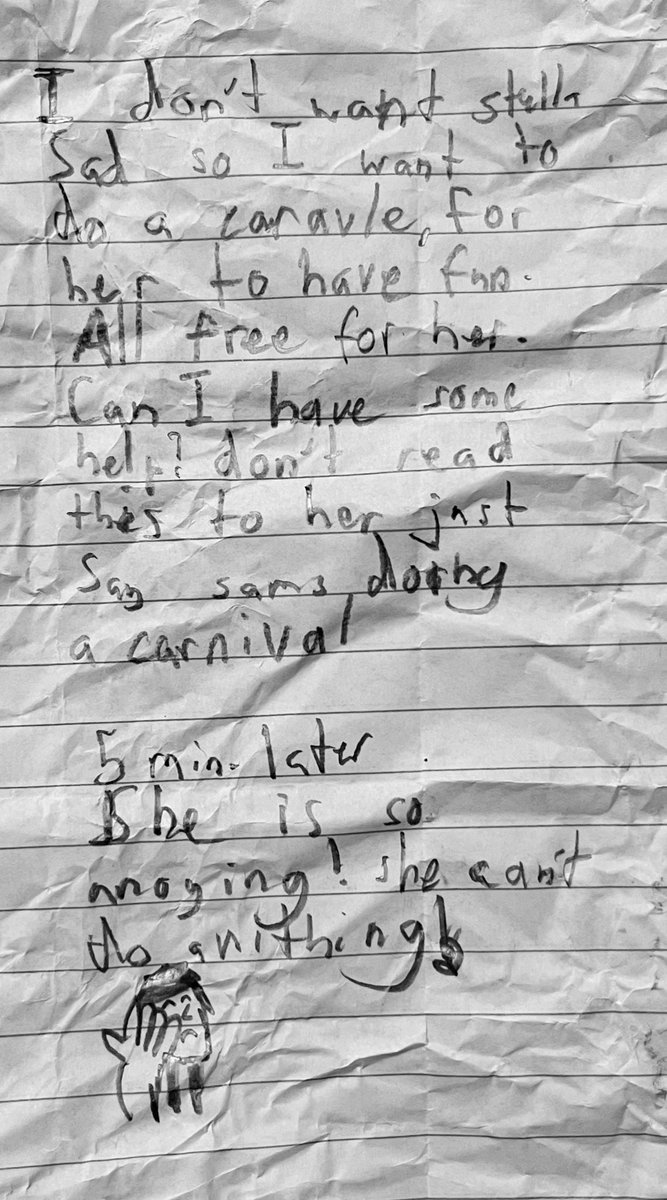 I don't want stella
Sad so I want to
do a caravle, for
her to have fun.
All free for her.
Can I have some
help? don't read
this to her just
Say sams doing
a carnival
5 min. later
She is so
anoying! she can't
do anithing!